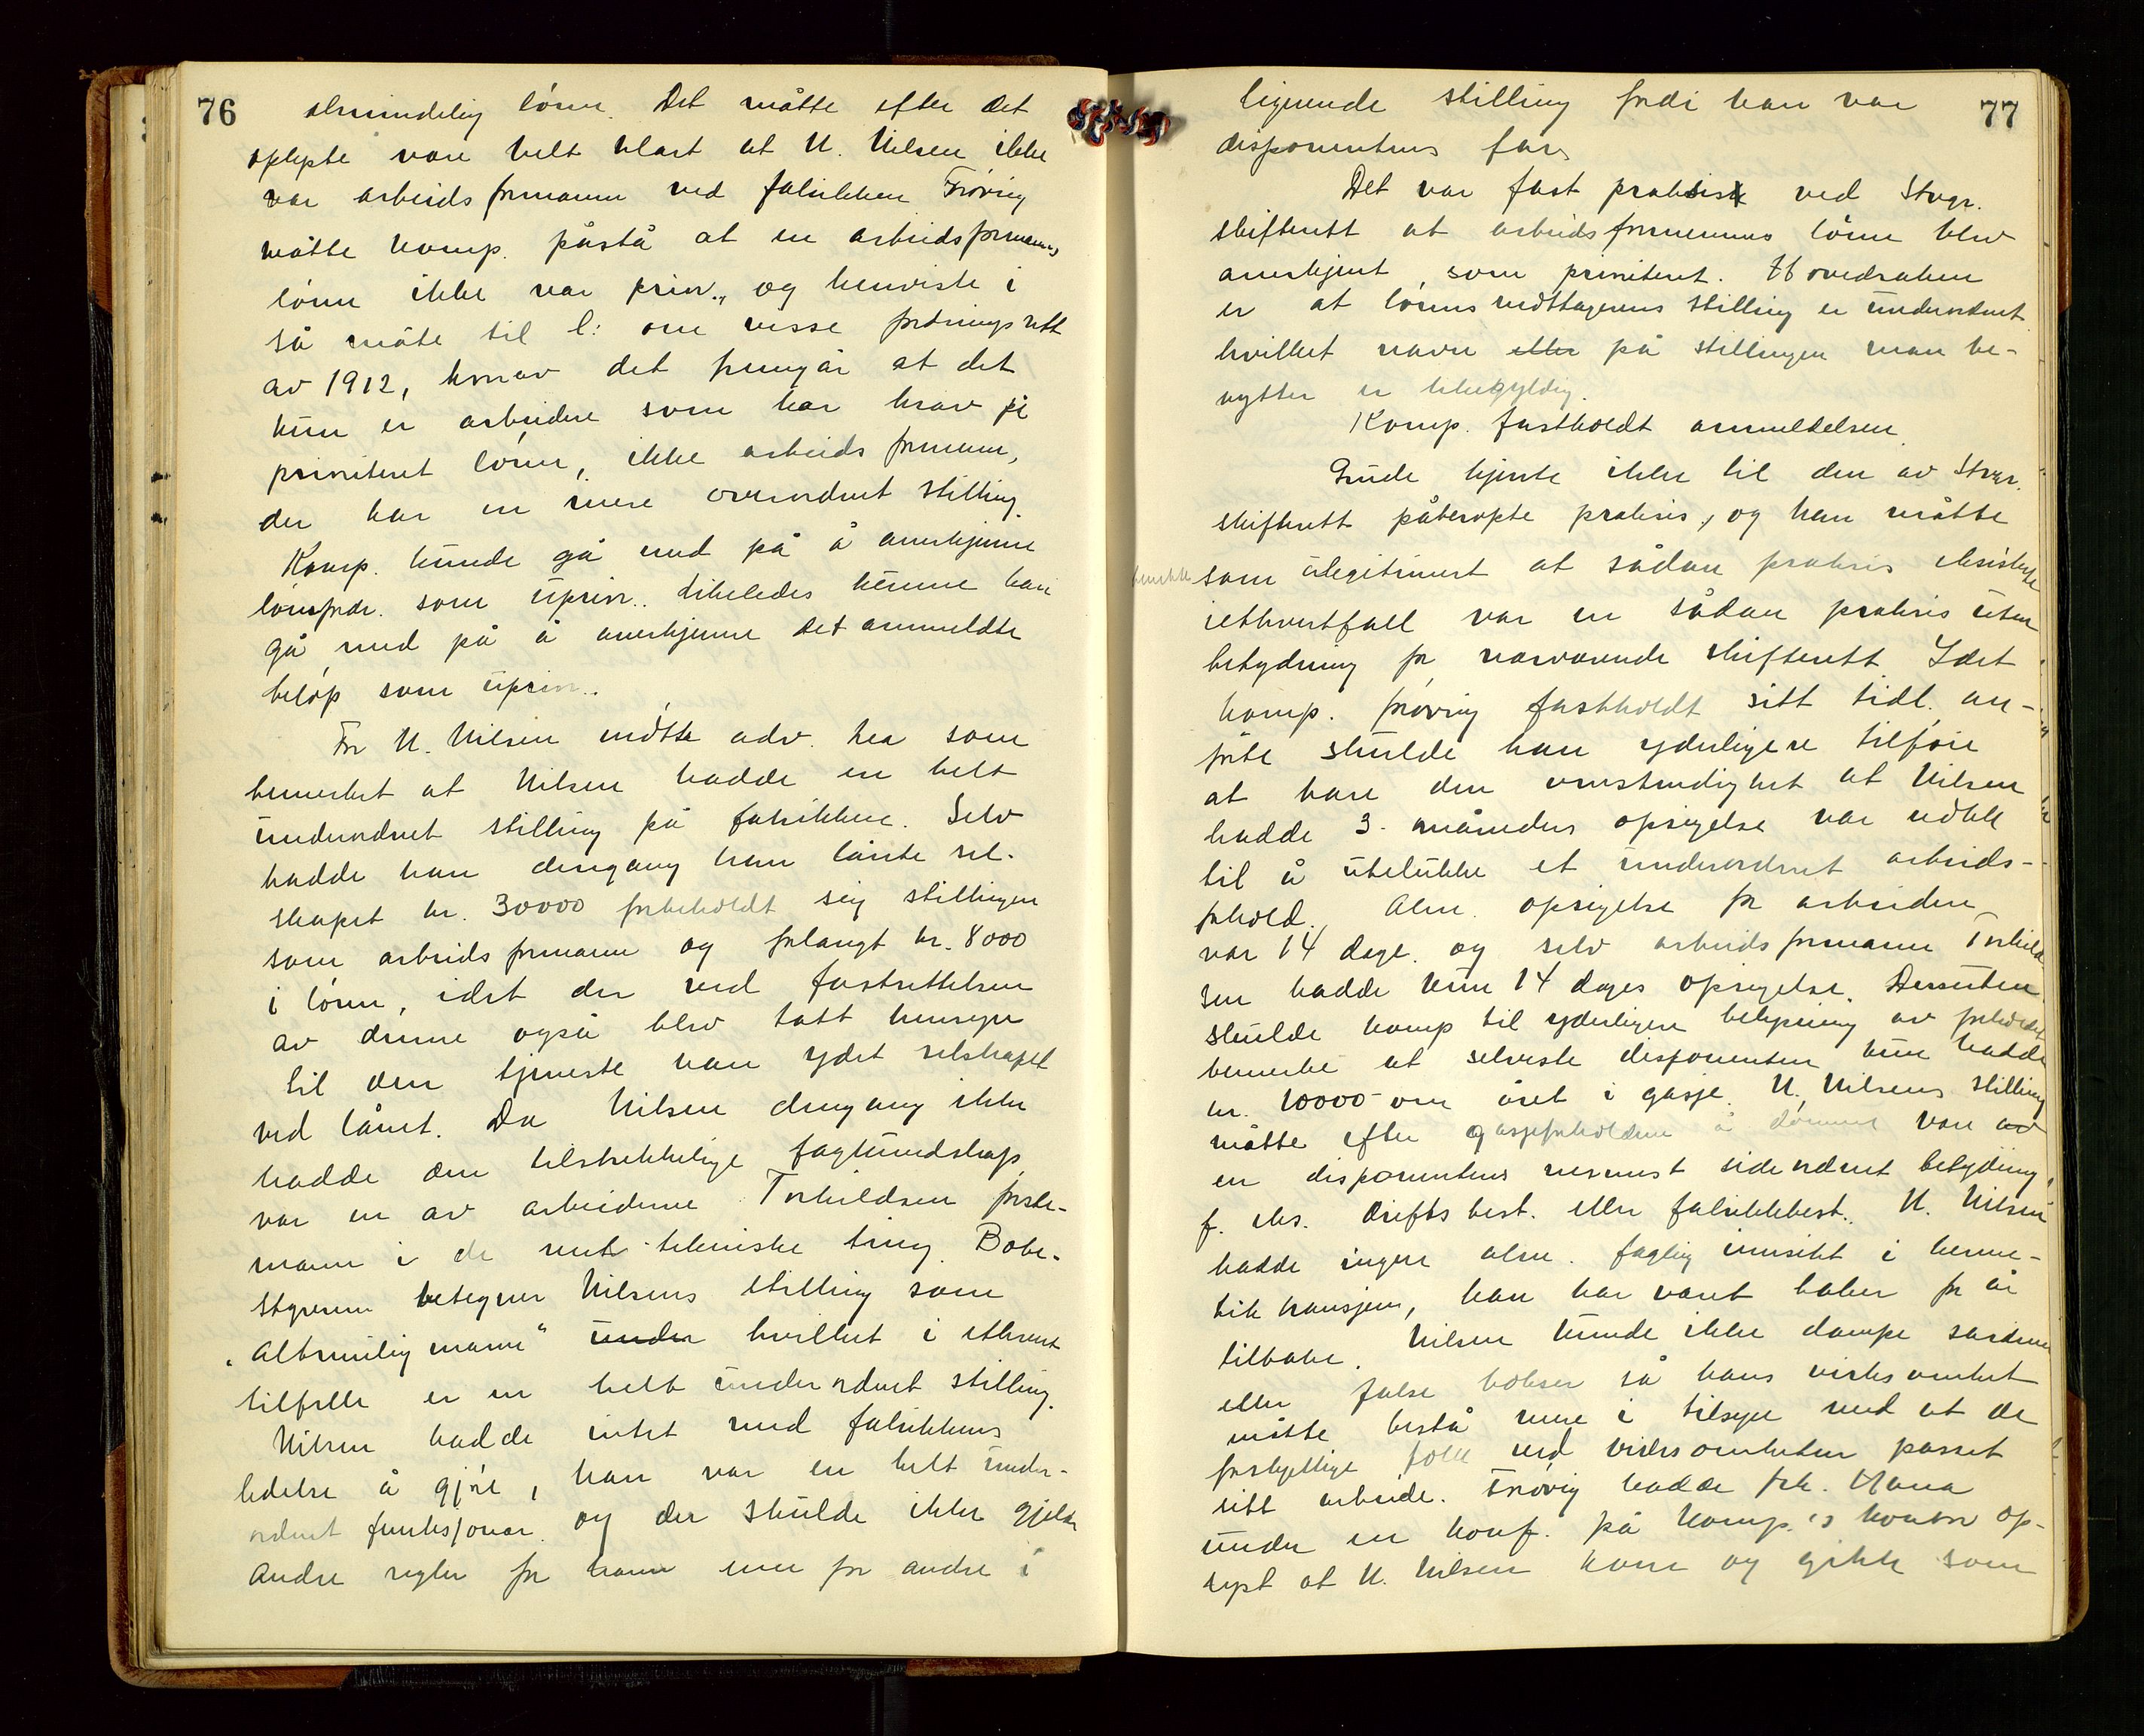 76
almindelig lønn. Det måtte efter det
oplyste være helt klart at N. Nilsen ikke
var arbeidsformann ved fabrikken Frøvig
måtte komp. påstå at en arbeidsformanns
lønn ikke var prior., og henviste i
så måte til l: om visse fordringsrett
av 1912, hvorav det fremgår at det
kun er arbeidere som har krav på
prioritert lønn, ikke arbeids formenn,
der har en mere overordnet stilling.
Komp. kunde gå med på å anerkjenne
lønsfordr. som uprior.. Likeledes kunne han
gå med på å anerkjenne det anmeldte
beløp som uprior..
For N. Nilsen møtte adv. Lea som
bemerket at Nilsen hadde en helt
underordnet stilling på fabrikken. Selv
hadde han dengang han lånte sel-
skapet kr. 30000 forbeholdt sig stillingen
som arbeids formann og forlangt kr. 8000
i lønn, idet der ved fastsettelsen
av denne også blev tatt hensyn
til den tjeneste han ydet selskapet
ved lånet. Da Nilsen dengang ikke
hadde den tilstrekkelige fagkundskap
var en av arbeiderne Torkildsen første-
mann i de rent tekniske ting. Bobe-
styreren betegner Nilsens stilling som
"Altmulig mann" under hvilket i ethvert
tilfelle er en helt underordnet stilling.
Nilsen hadde intet med fabrikkens
ledelse å gjøre, han var en helt under-
ordnet funksjonær og der skulde ikke gjelde
Andre regler for ham enn for andre i
77
lignende stilling fordi han var
disponentens far.
Det var fast praksis ved Stvgr.
skifterett at arbeidsformennenes lønn blev
anerkjent som prioritert. Hovedsaken
er at lønnsmottagerens stilling er underordnet
hvilket navn eller på stillingen man be-
nytter er likegyldig.
Komp. fastholdt anmeldelsen.
Gude kjente ikke til den av Stvgr.
skifterett påberopte praksis, og han måtte
som ulegitimert at sådan praksis eksisterte
iethvertfall var en sådan praksis uten
betydning for nærværende skifterett. Idet
komp. Frøvig fastholdt sitt tidl. an-
førte skulde han yderligere tilføie
at bare den omstendighet at Nilsen
hadde 3. måneders opsigelse var nokk
til å utelukke et underordnet arbeids-
forhold. Alm. opsigelse for arbeidere
var 14 dage. og selv arbeids formann Torkild-
sen hadde kun 14 dages opsigelse. Dessuten
skulde komp til yderligere belysning av forholdet
bemerke at selveste disponenten kun hadde
kr. 10000- om året i gasje. N. Nilsens stilling
måtte efter gasjeforholdene å dømme være av
en disponentens nermest sideordnet betydning,
f. eks. driftsbest. eller fabrikkbest.. N. Nilsen
hadde ingen alm. faglig innsikt i herme-
tik bransjen, han har været baker for år
tilbake. Nilsen kunde ikke dampe sardiner
eller false bokser så hans virksomhet
måtte bestå mere i tilsyn med at de
forskjellige folk ved virksomheten passet
sitt arbeide. Frøvig hadde frk. Hana
under en konf. på komp.'s kontor op-
lyst at N. Nilsen kom og gikk som